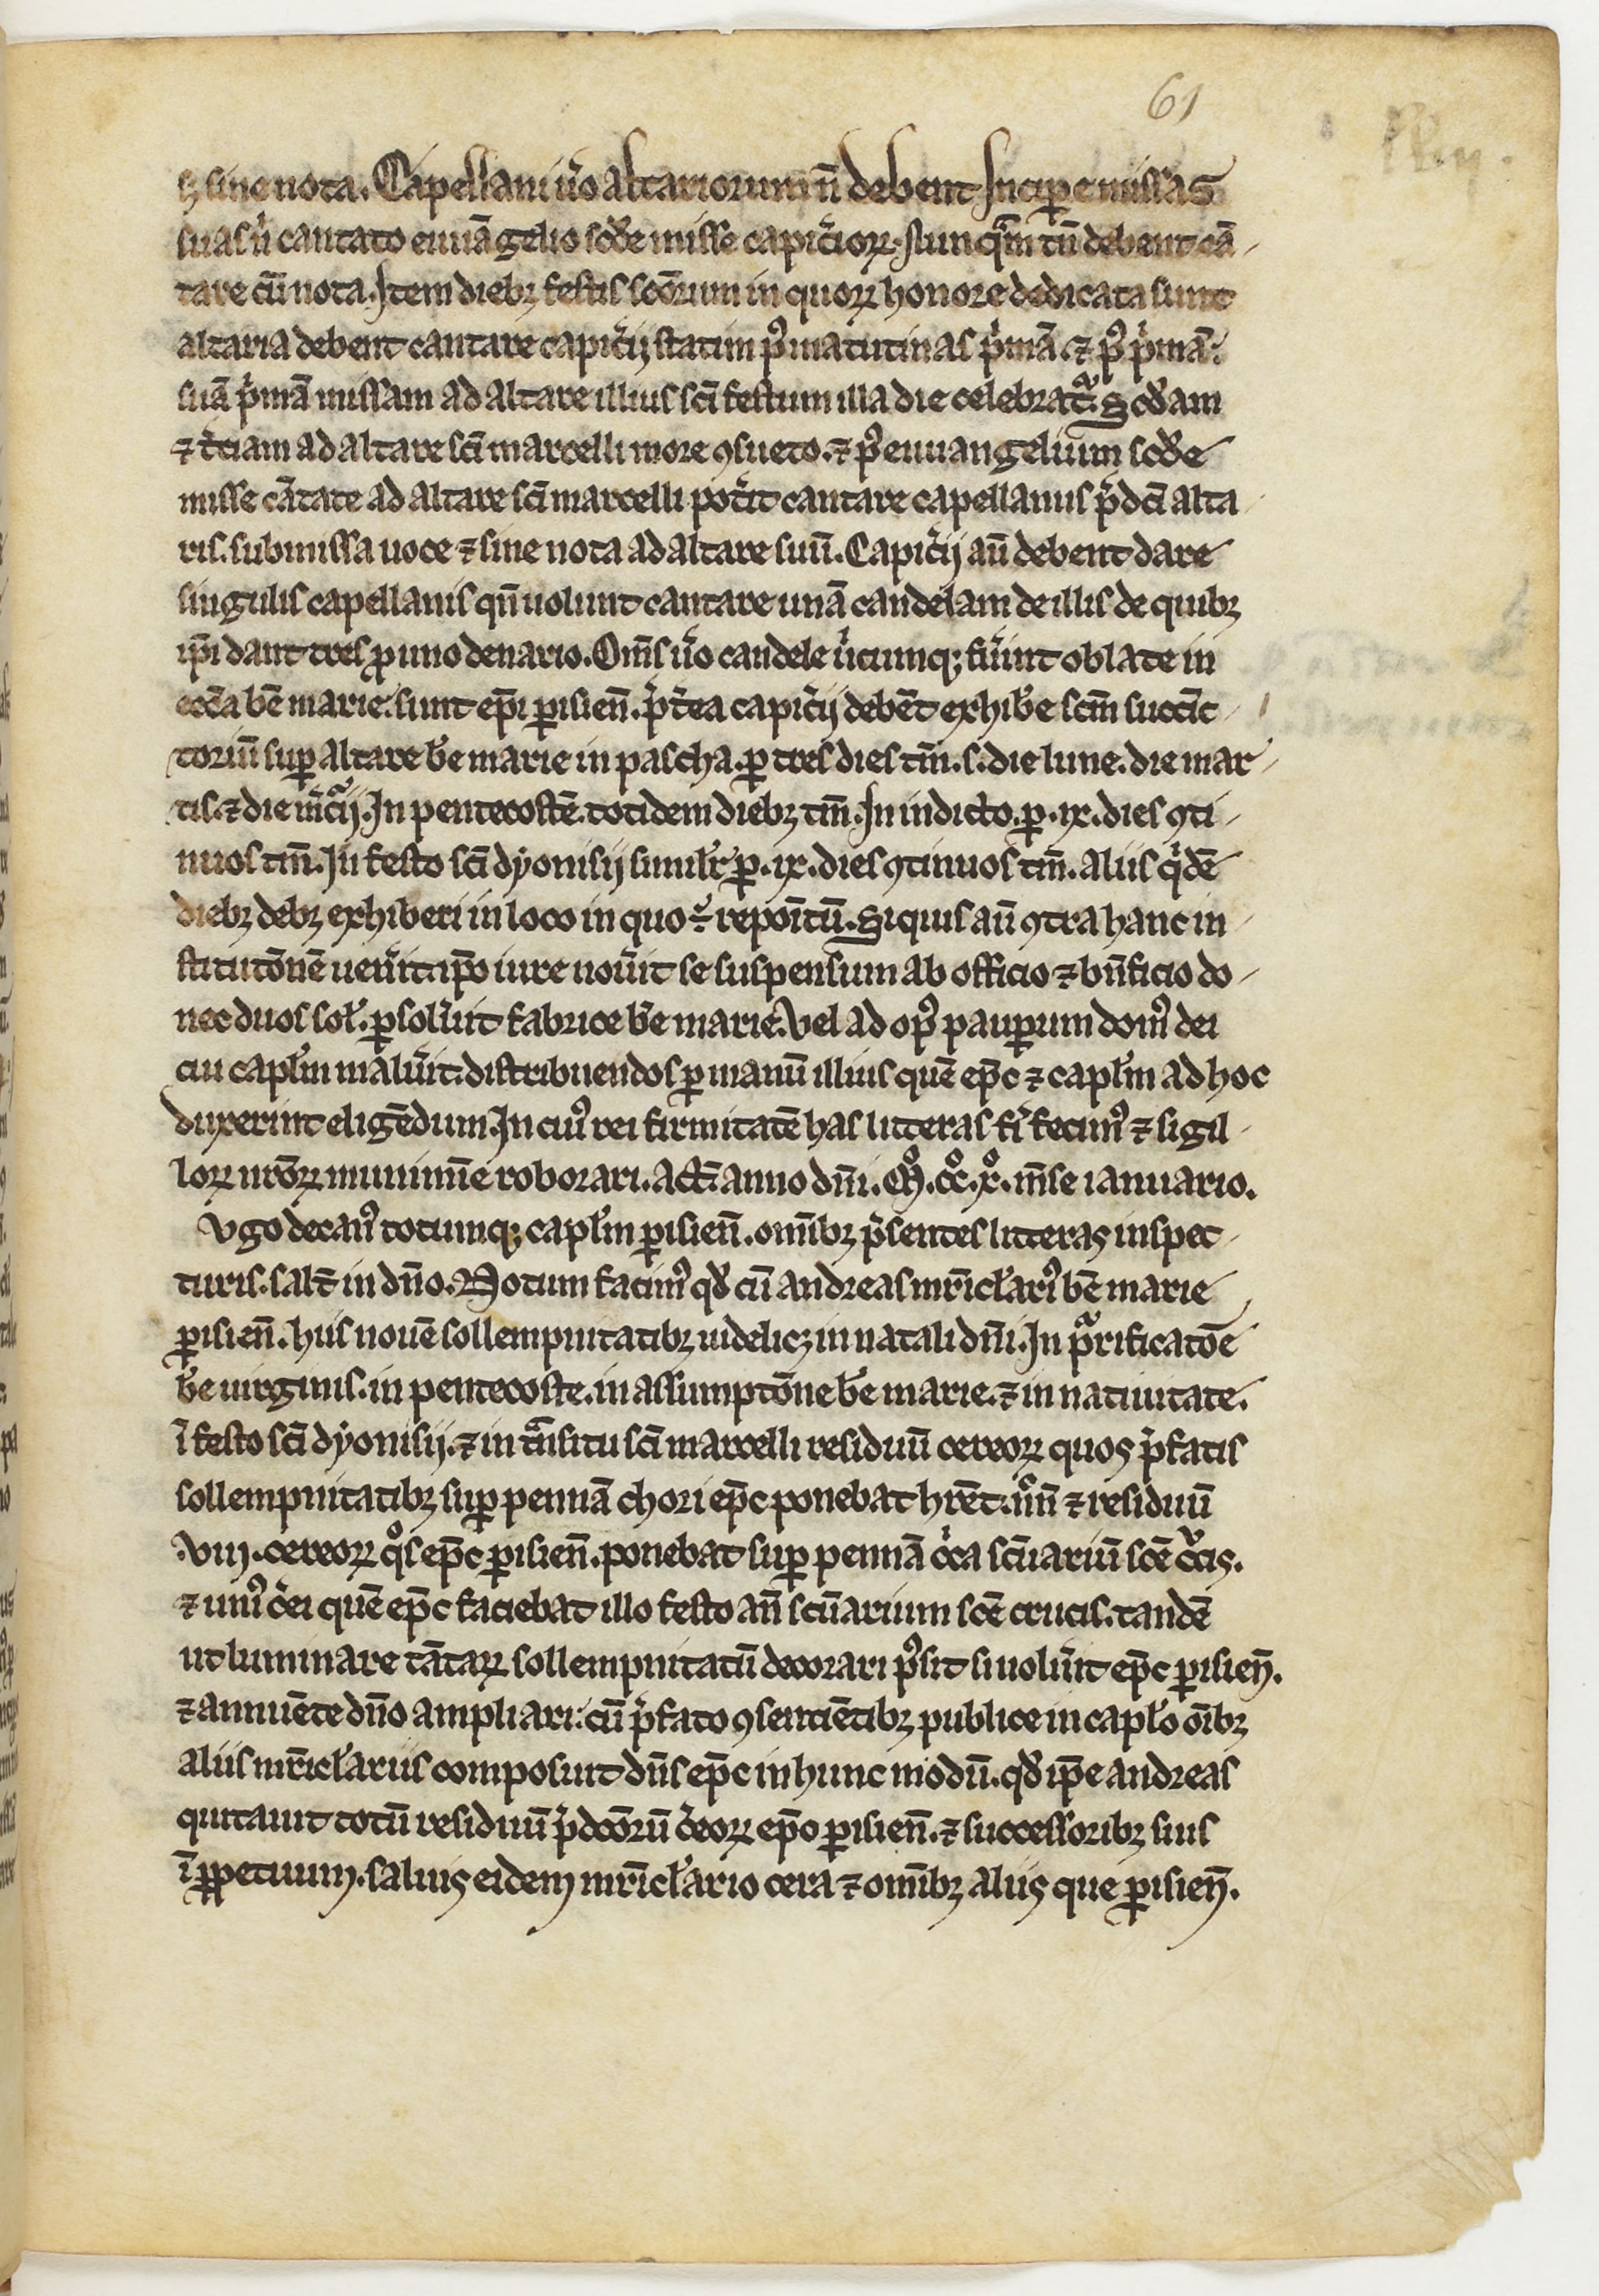 61
sꝫ sine nota. Capellani ũo altariorum ñ debent Incipe missas
suas ñ cantato euuãgelio scđe misse capiciorꝝ. Nunqͣm tñ debent cã-
tare cũ nota. Item diebꝫ festis scõrum in quorꝝ honore dedicata sunt
altaria debent cantare capicĩj statim pꝰ matutinas pͥmã. ⁊ pꝰ pͥmã.
suã pͥmã missam ad altare illius scĩ festum illa die celebratͣ. Scđam
⁊ tͨiam ad altare scĩ marcelli more ꝯsueto. ⁊ pꝰ euuangelium scđe
misse cãtate ad altare scĩ marcelli potĩt cantare capellanus pͥdcĩ alta-
ris. submissa uoce ⁊ sine nota ad altare suũ. Capicĩj aũ debent dare
singulis capellanis qñ uolunt cantare unã candelam de illis de quibꝫ
ip̃i dant tres ꝓ uno denario. Om̃s ũo candele ũcumqꝫ fũint oblate in
ecc̃a bẽ marie. sunt ep̃i ꝑisieñ. pͥtẽa capicĩj debẽt exhibẽ scm̃ succĩc-
toriũ suꝑ altare bẽ marie in pascha. ꝑ tres dies tm̃. s. die lune. die mar-
tis. ⁊ die m̃cͣij. In pentecostẽ. totidem diebꝫ tm̃. In indicto. ꝑ .ix. dies ꝯti-
nuos tm̃. In festo scĩ dyonisij similr̃ ꝑ .ix. dies ꝯtinuos tm̃. aliis qͥdẽ
diebꝫ debꝫ exhiberi in loco in quo ÷ repoĩtũ. Si quis aũ ꝯtra hanc in-
stitutõnẽ uenĩt ip̃o iure nouĩt se suspensum ab officio ⁊ bñficio do-
nec duos sol̃. ꝑsolũit fabrice bẽ marie. Vel ad opꝰ pauꝑum domꝰ dei
cui capl̃m malũit. distribuendos ꝑ manũ illius quẽ ep̃c ⁊ capl̃m ad hoc
duxerint eligẽdum. In cuiꝰ rei firmitatẽ has litteras fĩ fecimꝰ ⁊ sigil-
lorꝝ nr̃orꝝ munimĩe roborari. Act̃ anno dñi. Mͦ. CCͦ. Xͦ. m̃se ianuario.
Vgo decanꝰ totumqꝫ capl̃m ꝑisieñ. om̃ibꝫ pͥsentes litteras inspec-
turis. salt̃ in dño. Notum facimꝰ qđ cũ andreas mr̃icl̃ariꝰ bẽ marie
ꝑisieñ. hiis nouẽ sollempnitatibꝫ uidelicꝫ in natali dñi. In pͣrificatõe
bẽ uirginis. in pentecoste. in assumptõne bẽ marie. ⁊ in natiuitate.
ĩ festo scĩ dyonisij. ⁊ in tͣnsitu scĩ marcelli residuũ cereorꝝ quos pͥfatis
sollempnitatibꝫ suꝑ pennã chori ep̃c ponebat hr̃et. ñ ⁊ residuũ
.viij. cereorꝝ qͦs ep̃c ꝑisieñ. ponebat suꝑ pennã cͥca scũariũ scẽ cͬcis.
⁊ uniꝰ cẽi quẽ ep̃c faciebat illo festo añ scũarium scẽ crucis. tandẽ
ut luminare tãtarꝝ sollempnitatũ decorari pꝰsit si uolũit ep̃c ꝑisieñ.
⁊ annuẽte dño ampliari. cũ pͥfato ꝯsentiẽtibꝫ publice in capl̃o õibꝫ
aliis mr̃icl̃ariis composuit dñs ep̃c in hunc modũ. qđ ip̃e andreas
quitauit totũ residuũ pͥdcõrũ cẽorꝝ ep̃o ꝑisieñ. ⁊ successoribꝫ suis
ĩ ꝑpetuum. saluis eidem mr̃icl̃ario cera ⁊ om̃ibꝫ aliis que ꝑisieñ.